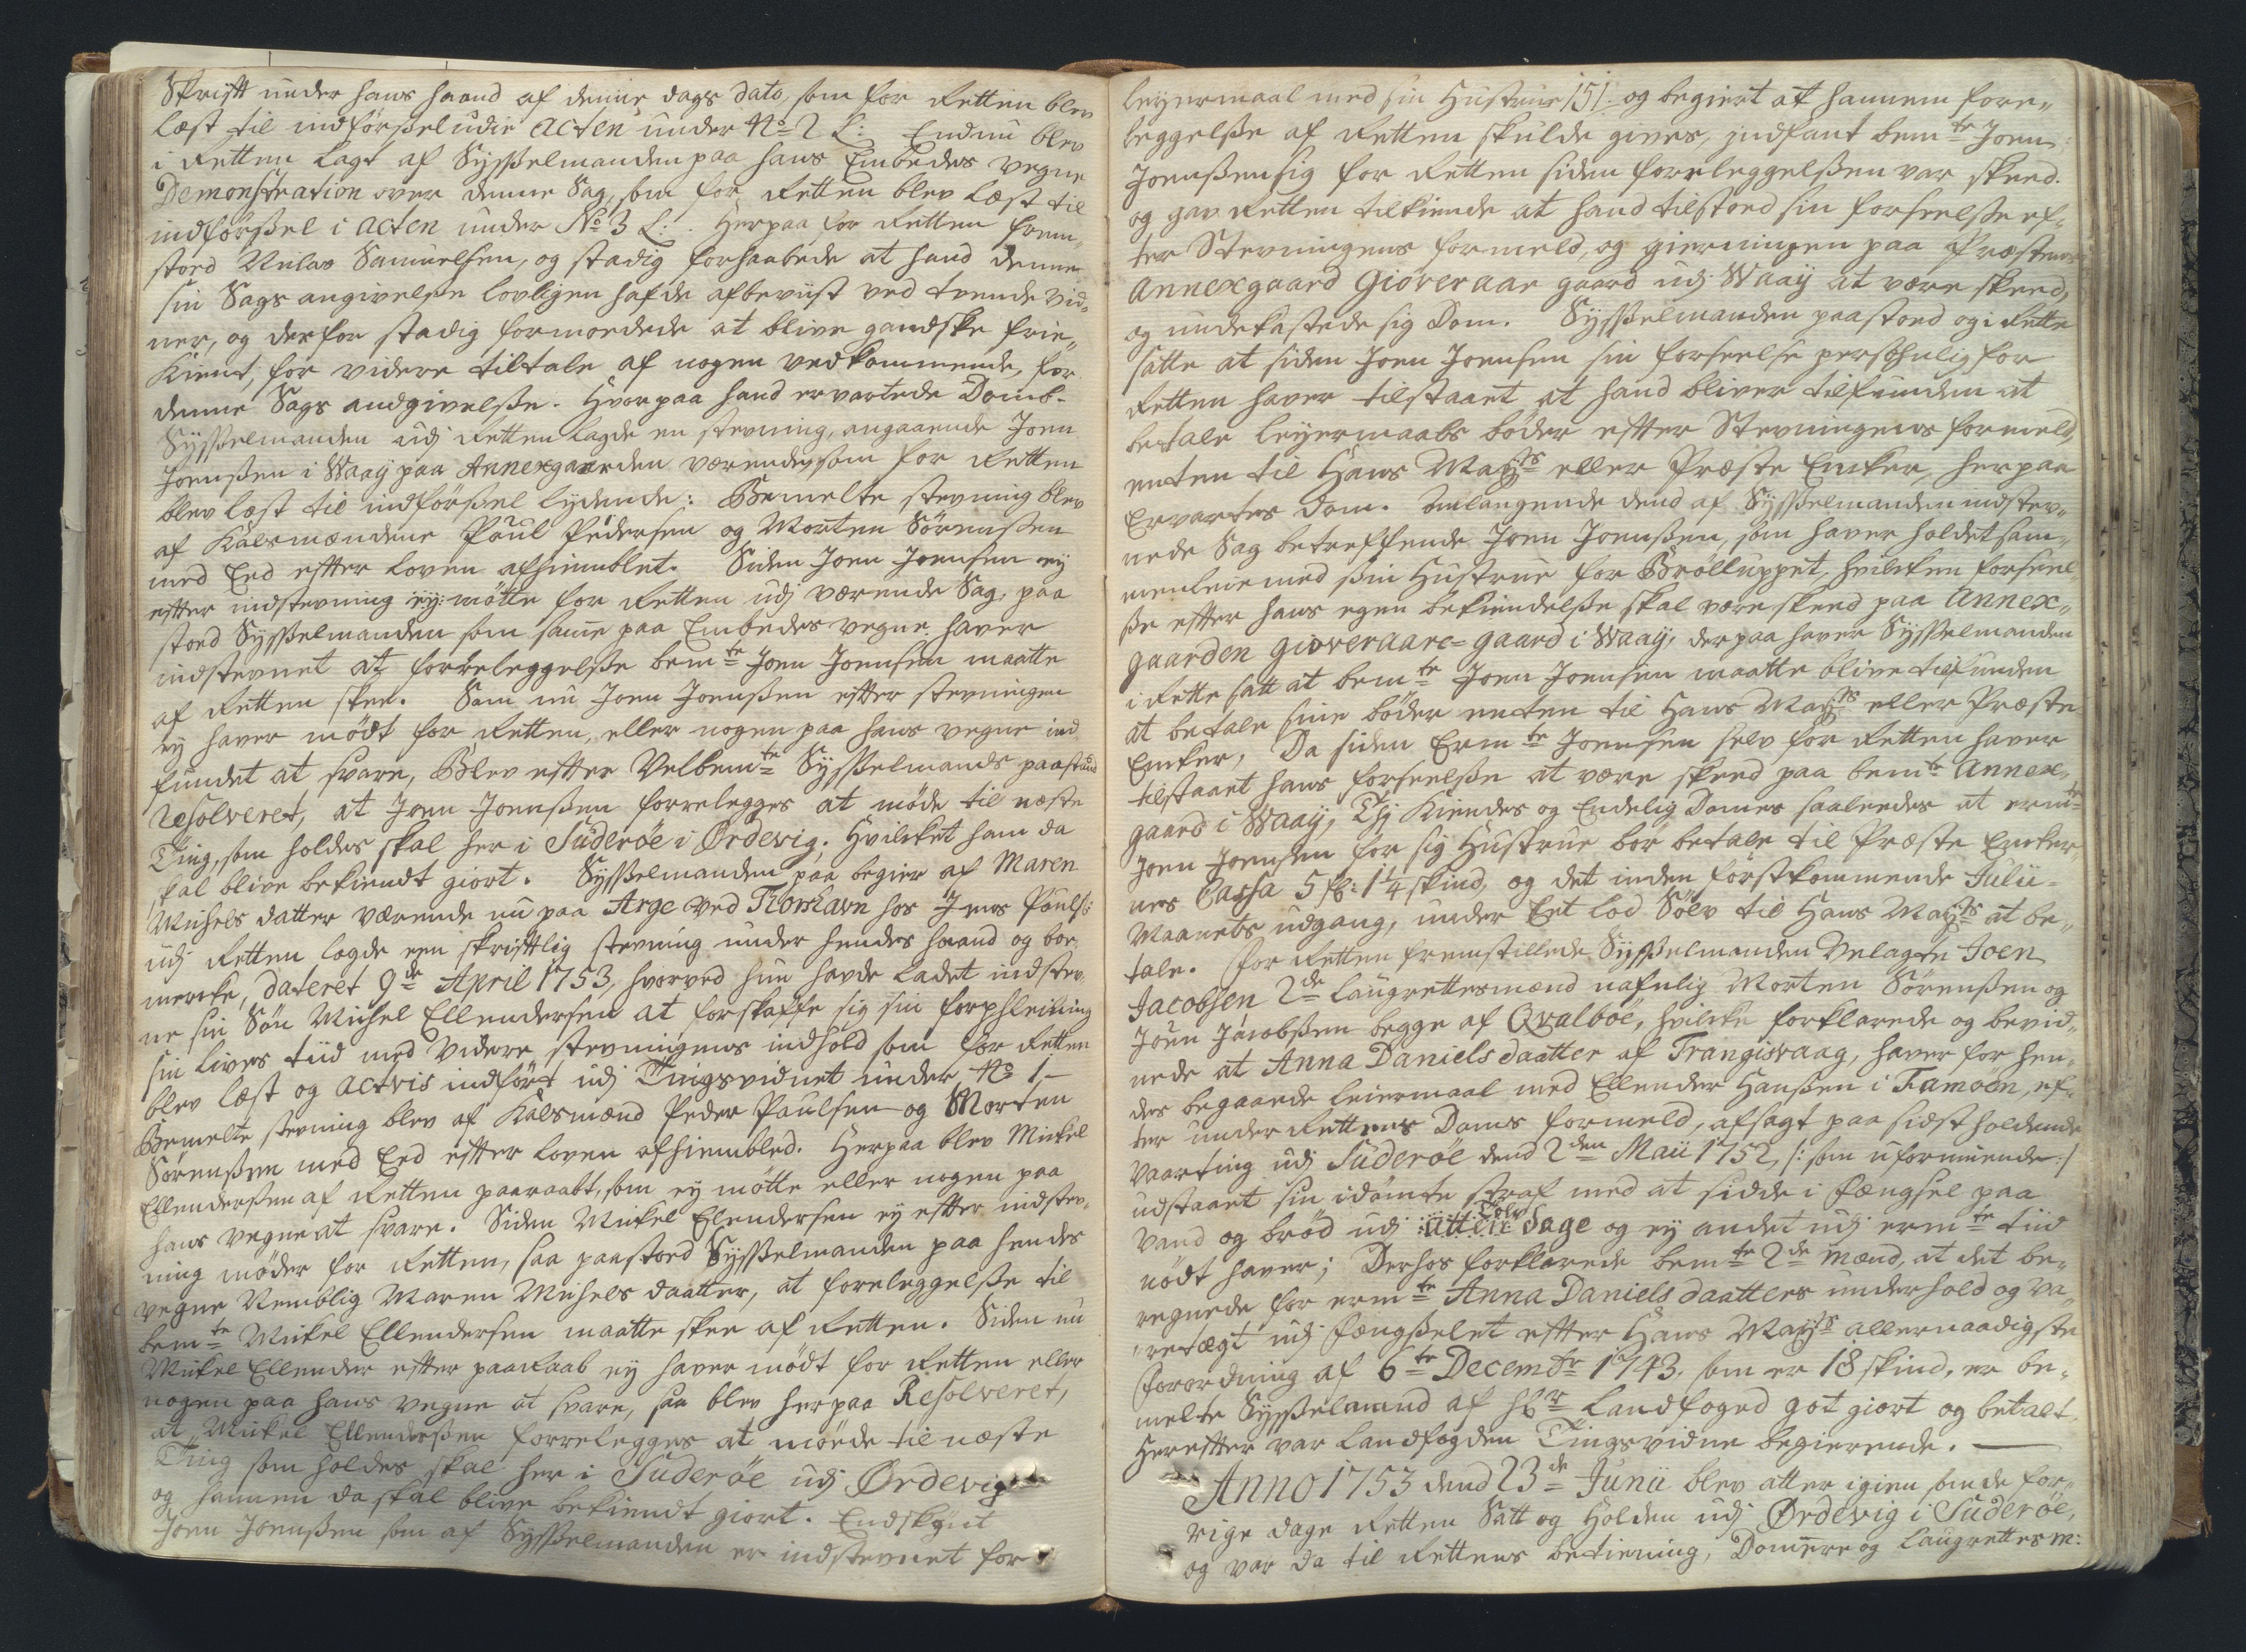 Skrift under hans haand af denne dags dato, som for Retten blev
læst til indførßel udi Acten under No 2 L: Endnu blev
i Retten lagt af Sysselmanden paa hans Embedes vegne
Demonstration over denne Sag, som for Retten blev læst til
indførßel i acten under No 3 L:. Herpaa for Retten frem-
stoed Niclas Samuelsen, og stadig forhaabede at hand denne
sin Sags angivelße lovligen hafde afbeviist ved tvende vid-
ner, og derfor stadig formoedede at blive gandske frie-
kient, for videre tiltale af nogen vedkommende, for
denne Sags andgivelße. Hvorpaa hand ervartede Domb.
Sysselmanden udj Retten lagde en stevning, angaaende Joen
Joenßen i Waaij paa Annexgaarden værende, som for Retten
blev læst til indførßel lydende: Bemelte stevning blev
af Kalsmændene Poul Pedersen og Morten Sörensen
med Eed efter loven afhiemblet. Siden Joen Joensen ey
efter indstevning ey mötte for Retten udj værende Sag, paa
stoed Sysselmanden som samme paa Embedes vegne haver
indstevnet at forreleggelße bemte Joen Joensen maatte
af Retten skee. Som nu Joen Joenßen efter stevningen
ey haver mödt for Retten, eller nogen paa hans vegne ind-
fundet at svare, Blev efter Velbemte Sysselmands paastand
Resolveret, at Joen Joenßen forrelegges at møde til næste
Ting, som holdes skal her i Suderöe i Ørdevig. Hvilcket ham da
skal blive bekiendt giort. Sysselmanden paa begier af Maren
Michels datter værende nu paa Arge ved Thorshavn hos Jens Poulß:
udj Retten lagde een skrifttlig stevning under hendes haand og boe-
mercke, dateret 9de April 1753, hvorved hun havde ladet indstev-
ne sin Sön Michel Ellendersen at forskaffe sig sin forphleining
sin livets tiid med videre stevningens indhold som for Retten
blev læst og actvis indfört udj Tingsvidnet under No 1.-
Bemelte stevning blev af Kalsmænd Peder Paulsen og Morten
Sörenßen med Eed efter loven afhiembled. Herpaa blev Mickel
Ellenderßen af Retten paaraabt, som ey mötte eller nogen paa
hans vegne at svare. Siden Mickel Ellendersen ey efter indstev-
ning möder for Retten, saa paastoed Sysselmanden paa hendes
vegne Nemblig Maren Michels daatter, at foreleggelße til
bemte Mickel Ellendersen maatte skee af Retten. Siden nu
Mickel Ellender efter paaraab ey haver mödt for Retten eller
nogen paa hans vegne at svare, saa blev herpaa Resolveret,
at Mickel Ellenderßen forrelegges at möede til næste
Ting som holdes skal her i Suderöe udj Ørdevig
og hannem da skal blive bekiendt giort. Endskönt
Joen Joenßen som af Sysselmanden er indstevnet for
leyermaal med sin Hustrue /5/. og begiert at hannem fore-
leggelße af Retten skulde gives, indfant bemte Joen
Joenßen sig for Retten siden forreleggelßen var skeed.
og gav Retten tilkiende at hand tilstoed sin forseelße ef-
ter Stevningens formeld, og gierningen paa Præstens
Annexgaard Gioveraae gaard udj Waaij at være skeed,
og undekastede sig Dom. Sysselmanden paastoed og i Rette
satte at siden Joen Joensen sin forseelse persohnlig for
Retten haver tilstaaet at hand bliver tilfunden at
betale leyermaals böder efter Stevningens formeld,
enten til Hans Mayts eller Præste Encker, herpaa
Ervartes Dom. Anlangende dend af Sysselmanden indstev-
nede Sag betreffende Joen Joenßen, som haver holdet sam-
menleie med ßin Hustrue for Brölluppet, hvilcken forseel-
ße efter hans egen bekiendelße skal være skeed paa Annex-
gaarden Gioveraare-gaard i Waaij, derpaa haver Sysselmanden
i Rette satt at bemte Joen Joensen maatte blive tilfunden
at betale sine böder enten til Hans Mayts eller Præste
Encker, Da siden Ermte Joensen selv for Retten haver
tilstaaet hans forseelße at være skeed paa bemte Annex-
gaard i Waaij, Thj kiendes og Endelig Dömes saaledes at ermte
Joen Joensen for sig Hustrue bör betale til Præste Encker-
nes Cassa 5 fl: 1 1/4 skind, og det inden förstkommende Julii
Maanets udgang, under Eet lod Sölv til Hans Mayts at be-
tale. For Retten fremstillede Sysselmanden Velagte Joen
Jacobsen 2de laugrettesmænd nafnlig Morten Sörenßen og
Joen Jacobßen begge af Qvalböe, hvilcke forklarede og bevid-
nede at Anna Daniels daatter af Trangisvaag, haver for hen-
des begaaede leiermaal med Ellender Hanßen i Famöen, ef-
ter under Rettens Doms formeld, afsagt paa sidst holdende
vaarting udj Suderöe dend 2den Maii 1752, /: som uformuende :/
udstaaet sin idömte straf med at sidde i fængsel paa
vand og bröd udj atten Tolv dage og ey andet udj ermte tiid
nödt haver; Derhos forklarede bemte 2de mænd, at det be-
regnede for ermte Anna Daniels daatters underhold og va-
retægt udj fængßelet efter Hans Mayts allernaadigste
forordning af 6te Decembr 1743. som er 18 skind, er be-
melte Sysselmand af Hr Landfoged got giort og betalt.
Herefter var landfogden Tingsvidne begierende. —
Anno 1753 dend 23de Junii blev atter igien som de for-
rige dage Retten Satt og Holden udj Ørdevig i Suderöe,
og var da til Rettens betiening, Dommere og Laugrettesm: